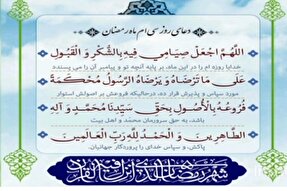 دعای روز سی ام ماه رمضان
اللَّهُمَّ اجْعَلْ صِيَامِي فِيهِ بِالشُّكْرِ وَ الْقَبُولِ
خدایا روزه ام را در این ماه، بر پایه آنچه تو و پیامبر آن را می پسندد
عَلَى مَا تَرْضَاهُ وَ يَرْضَاهُ الرَّسُولُ مُحْكَمَةً
مورد سپاس و پذیرش قرار ده، درحالیکه فروعش بر اصولش استوار
فُرُوعُهُ بِالْأُصُولِ بِحَقِّ سَيِّدِنَا مُحَمَّدٍ وَ آلِهِ
باشد، به حق سرورمان محمد و اهل بیت
الطَّاهِرِينَ وَ الْحَمْدُ لِلَّهِ رَبِّ الْعَالَمِينَ
پاکش، و سپاس خدای را پروردگار جهانیان.
شهر رمضان الذی انزل فیه القرآن